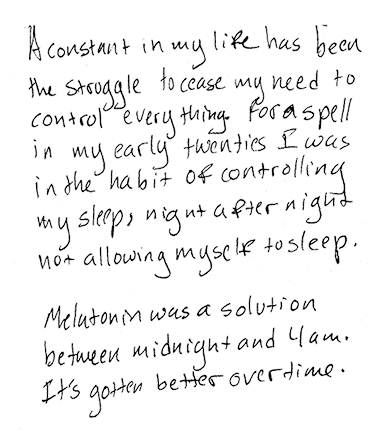 A constant in my life has been
the struggle to cease my need to
control everything. For a spell
in my early twenties I was
in the habit of controlling
my sleep, night after night
not allowing myself to sleep.
Melatonin was a solution
between midnight and 4am.
It's gotten better overtime.